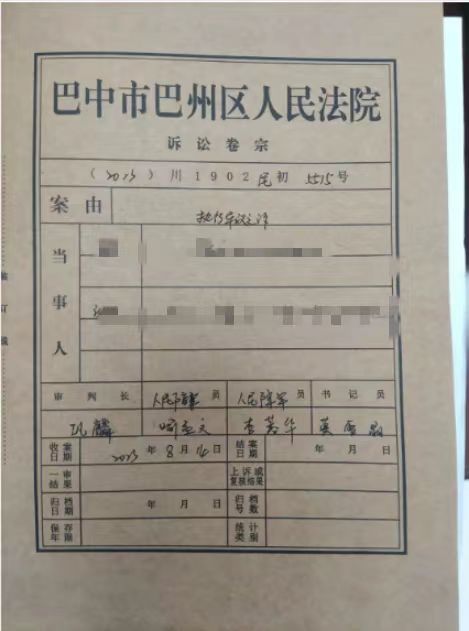 巴中市巴州区人民法院
诉讼卷宗
(2023)川1902民初5515号
案由
执行异议之诉
当事人
审判长 人民陪审员 人民陪审员 书记员
收案日期 2023年8月14日 结案日期 年 月 日
一审结果 上诉或复核结果
归档日期 年 月 日 归档号数
保存年限 统计类别
装订线